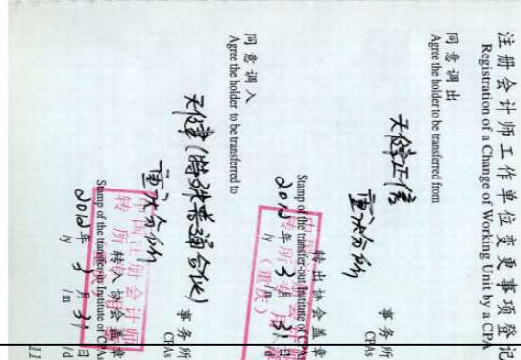 注册会计师工作单位变更事项登记
Registration of a Change of Working Unit by a CPA
同意调出
Agree the holder to be transferred from
天健正信
重庆分所
事务所
CPAs
转出协会盖章
Stamp of the transfer-out Institute of CPAs
2012年 3月 31日
/y /m
同意调入
Agree the holder to be transferred to
天健(特殊普通合伙)
重庆分所
事务所
CPAs
转入协会盖章
Stamp of the transfer-in Institute of CPAs
2012年 3月 31日
/y /m /d
11